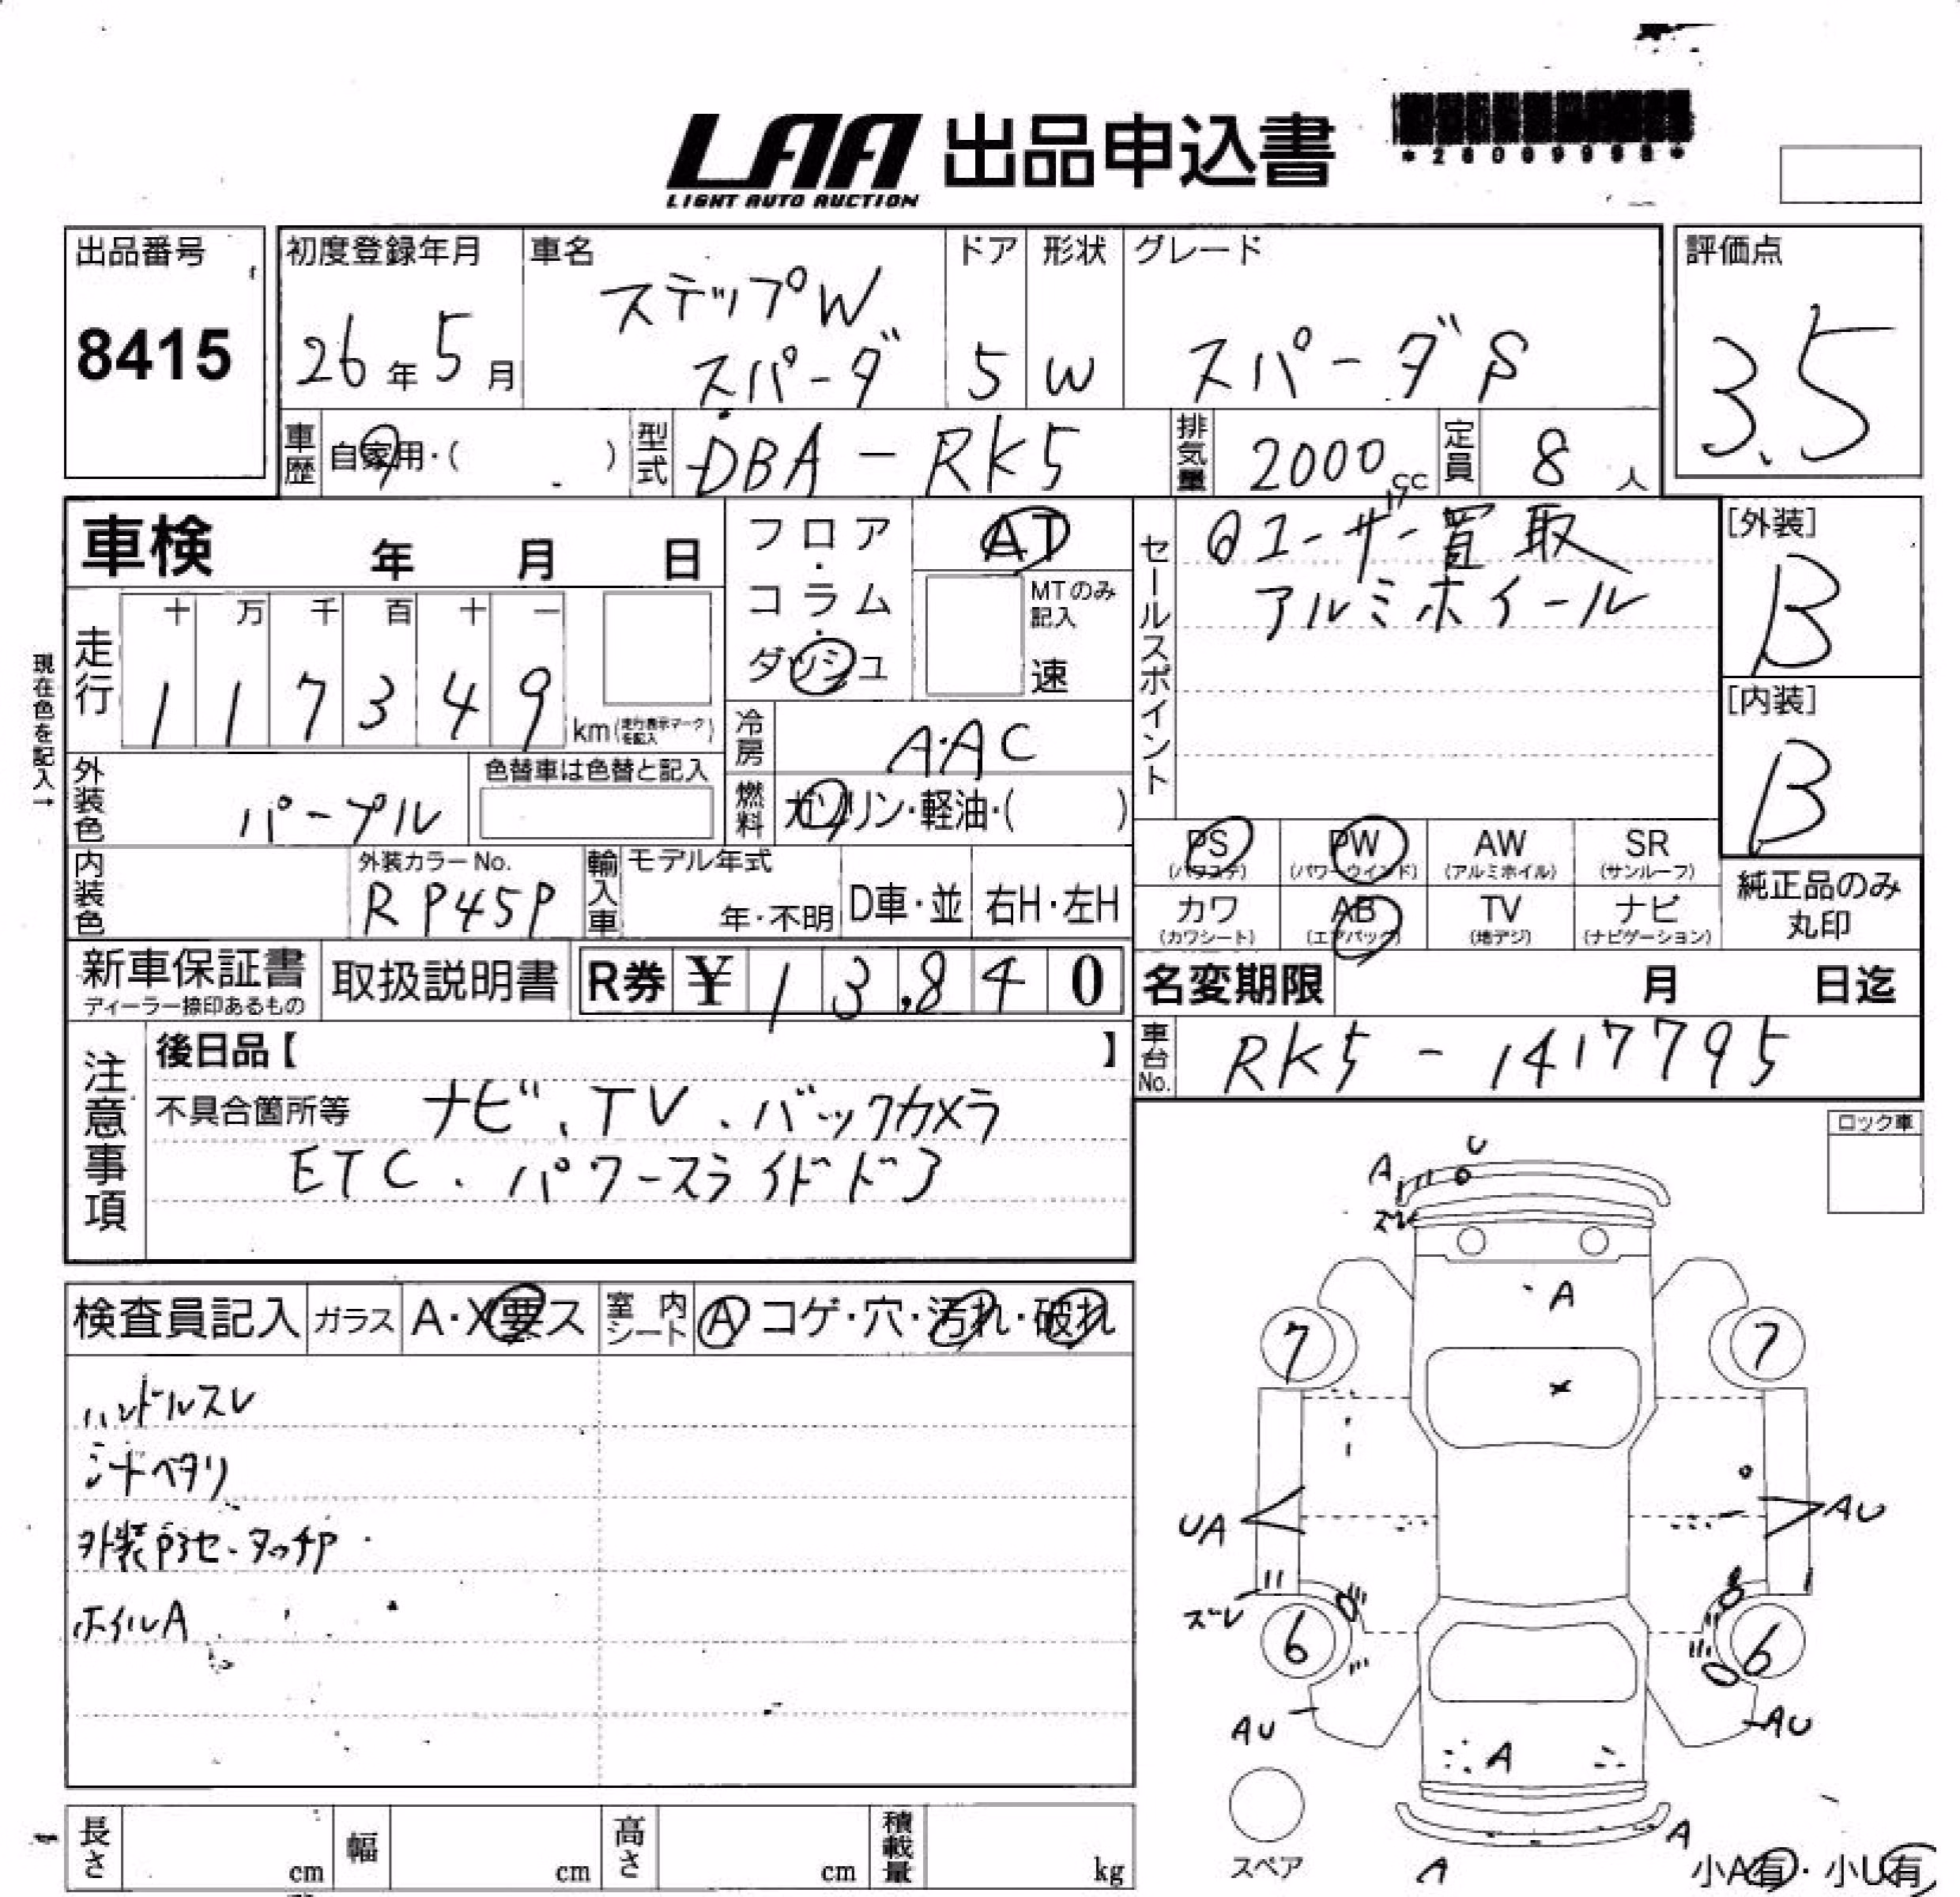 LAA 出品申込書
LIGHT AUTO AUCTION
出品番号
8415
初度登録年月
26年5月
車名
ステップW
スパーダ
ドア
5
形状
W
グレード
スパーダS
評価点
3.5
車歴
自家用・( )
型式
DBA-RK5
排気量
2000cc
定員
8人
車検 年 月 日
フロア・コラム・ダッシュ
AT
MTのみ記入
速
セールスポイント
ユーザー買取
アルミホイール
[外装]
B
[内装]
B
現在色を記入→
走行
十 万 千 百 十 一
1 1 7 3 4 9 km(走行表示マークを記入)
冷房
AAC
燃料
ガソリン・軽油・( )
外装色
パープル
色替車は色替と記入
内装色
外装カラーNo.
RP45P
輸入車
モデル年式
年・不明
D車・並
右H・左H
PS
(パワステ)
PW
(パワーウインド)
AW
(アルミホイル)
SR
(サンルーフ)
カワ
(カワシート)
AB
(エアバック)
TV
(地デジ)
ナビ
(ナビゲーション)
純正品のみ
丸印
新車保証書
ディーラー捺印あるもの
取扱説明書
R券 ¥ 1 3,8 4 0
名変期限 月 日迄
車台No.
RK5-1417795
注意事項
後日品【 】
不具合箇所等 ナビ、TV、バックカメラ
ETC、パワースライドドア
ロック車
検査員記入
ガラス
A・X要ス
室内シート
A コゲ・穴・汚れ・破れ
ハンドルスレ
シートヘタリ
ホイルA
U
A
ズレ
A
7
7
UA
AU
ズレ
6
6
AU
AU
A
スペア
A
A
小A有・小U有
長さ cm
幅 cm
高さ cm
積載量 kg